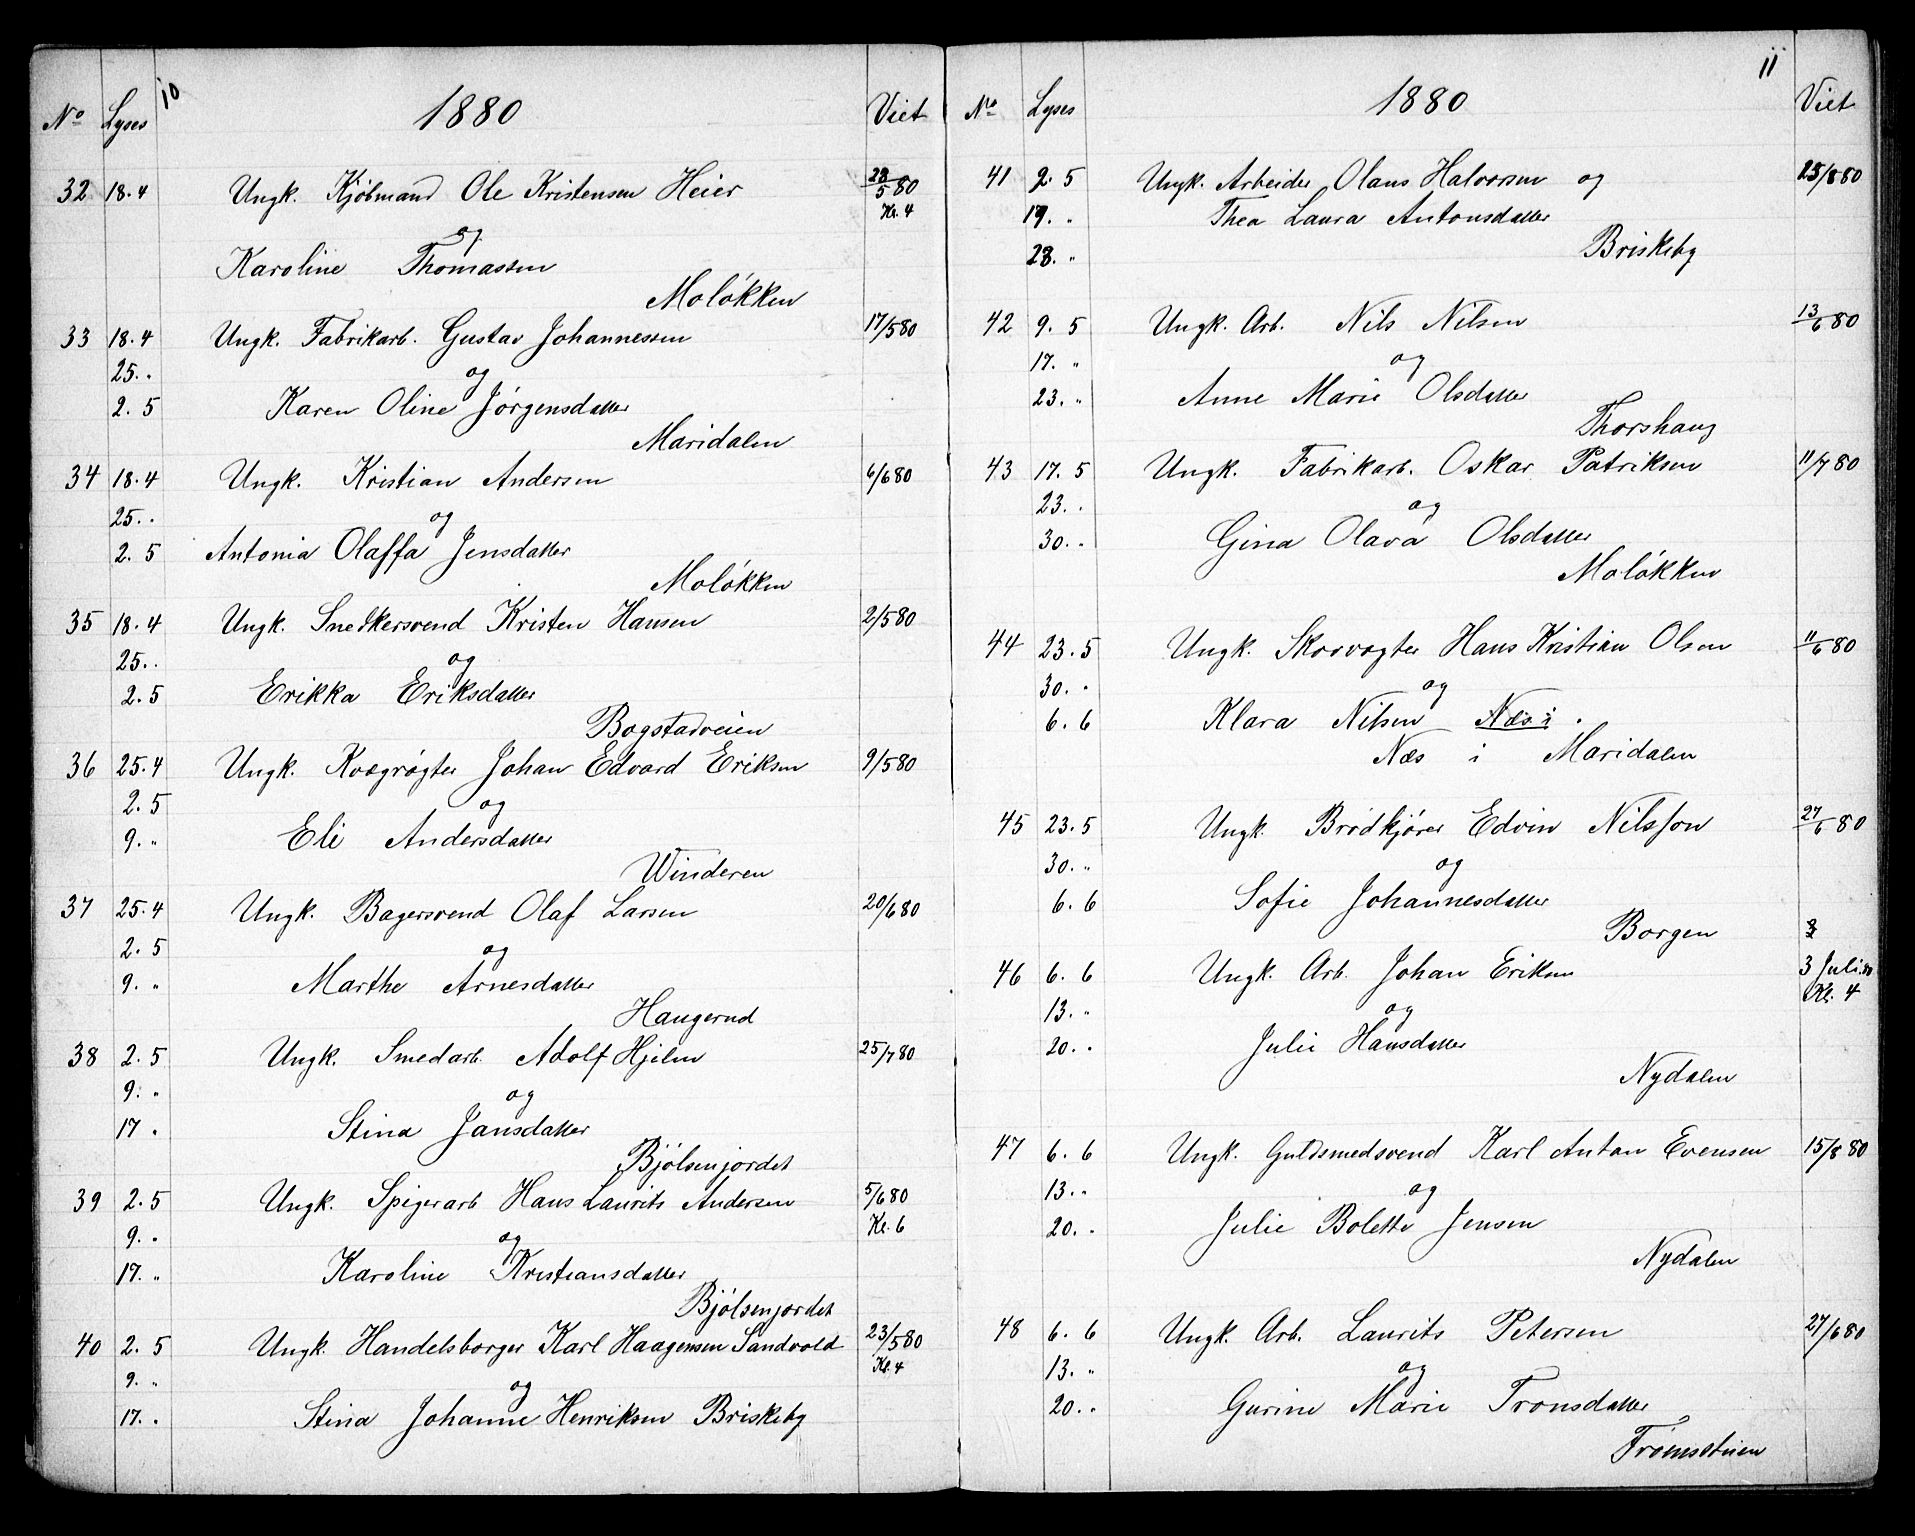 10
1880
No Lyses Viet
32 18.4 Ungk. Kjöbmand Ole Kristensen Heier 23/5 80
og Kl. 4
Karoline Thomassen
Moløkken
33 18.4 Ungk. Fabrikarb. Gustav Johannessen 17/5 80
25. " og
2. 5 Karen Oline Jørgensdatter
Maridalen
34 18.4 Ungk. Kristian Andersen 6/6 80
25. " og
2. 5 Antonia Olaffa Jensdatter
Moløkken
35 18.4 Ungk. Snedkersvend Kristen Hansen 2/5 80
25. " og
2. 5 Erikka Eriksdatter
Bogstadveien
36 25.4 Ungk. Kvægrøgter Johan Edvard Eriksen 9/5 80
2. 5 og
9. " Eli Andersdatter
Winderen
37 25.4 Ungk. Bagersvend Olaf Larsen 20/6 80
2. 5 og
9. " Marthe Arnesdatter
Haugerud
38 2. 5 Ungk. Smedarb. Adolf Hjelm 25/7 80
9. " og
17 " Stina Jansdatter
Bjølsenjordet
39 2. 5 Ungk. Spigerarb Hans Laurits Andersen 5/6 80
9. " og Kl. 6
17. " Karoline Kristiansdatter
Bjølsenjordet
40 2. 5 Ungk. Handelsborger Karl Haagensen Sandvold 23/5 80
9. " og Kl. 4
17. " Stina Johanne Henriksen Briskeby
11
1880
No Lyses Viet
41 2. 5 Ungk. Arbeider Olaus Halvorsen og 25/8 80
17. " Thea Laura Antonsdatter
23. " Briskeby
42 9. 5 Ungk. Arb. Nils Nilsen 13/6 80
17. " og
23. " Anne Marie Olsdatter
Thorshaug
43 17. 5 Ungk. Fabrikarb. Oskar Patriksen 11/7 80
23. " og
30. " Gina Olava Olsdatter
Moløkken
44 23. 5 Ungk. Skovvogter Hans Kristian Olsen 11/6 80
30. " og
6. 6 Klara Nilsen Næs i
Næs i Maridalen
45 23. 5 Ungk. Brødkjører Edvin Nilsson 27/6 80
30. " og
6. 6 Sofie Johannesdatter
Borgen
46 6. 6 Ungk. Arb. Johan Eriksen 3 Juli 80
13. " og Kl. 4
20. " Julie Hansdatter
Nydalen
47 6. 6 Ungk. Guldsmedsvend Karl Anton Evensen 15/8 80
13. " og
20. " Julie Bolette Jensen
Nydalen
48 6. 6 Ungk. Arb. Laurits Petersen 27/6 80
13. " og
20. " Gurine Marie Tronsdatter